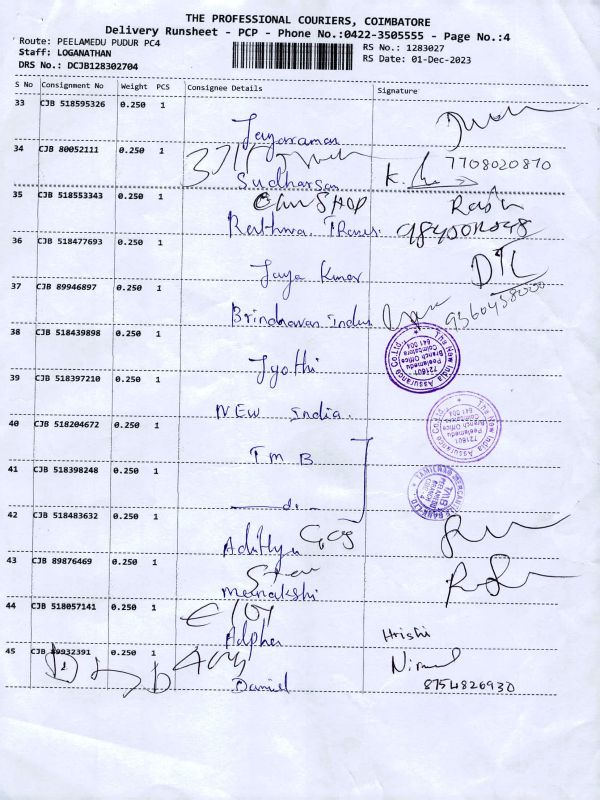 THE PROFESSIONAL COURIERS, COIMBATORE
Delivery Runsheet - PCP - Phone No.:0422-3505555 - Page No.:4
Route: PEELAMEDU PUDUR PC4
Staff: LOGANATHAN
DRS No.: DCJB128302704
RS No.: 1283027
RS Date: 01-Dec-2023
S No Consignment No Weight PCS Consignee Details Signature
33 CJB 518595326 0.250 1
Jayaraman
34 CJB 80052111 0.250 1
Sudharsan K. 7708020870
35 CJB 518553343 0.250 1
36 CJB 518477693 0.250 1
Jaya Kumar DTC
37 CJB 89946897 0.250 1
Brindhavan Indus
38 CJB 518439898 0.250 1
Jyothi
The New India Assurance Co. Ltd.,
721601
Peelamedu
Branch Office
Coimbatore
641 004
39 CJB 518397210 0.250 1
NEW India.
The New India Assurance Co. Ltd.,
721601
Peelamedu
Branch Office
Coimbatore
641 004
40 CJB 518204672 0.250 1
TMB
41 CJB 518398248 0.250 1
TAMILNAD MERCANTILE BANK LTD
TMB
42 CJB 518483632 0.250 1
Adithya
43 CJB 89876469 0.250 1
Meenakshi
44 CJB 518057141 0.250 1
Alpha Hrishi
45 CJB 89932391 0.250 1
Daniel Nirmal
8754826930